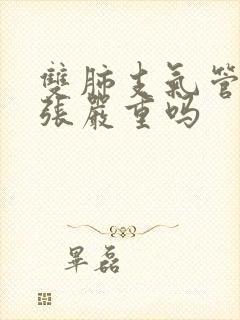 雙肺支氣管
張嚴重嗎
畢磊